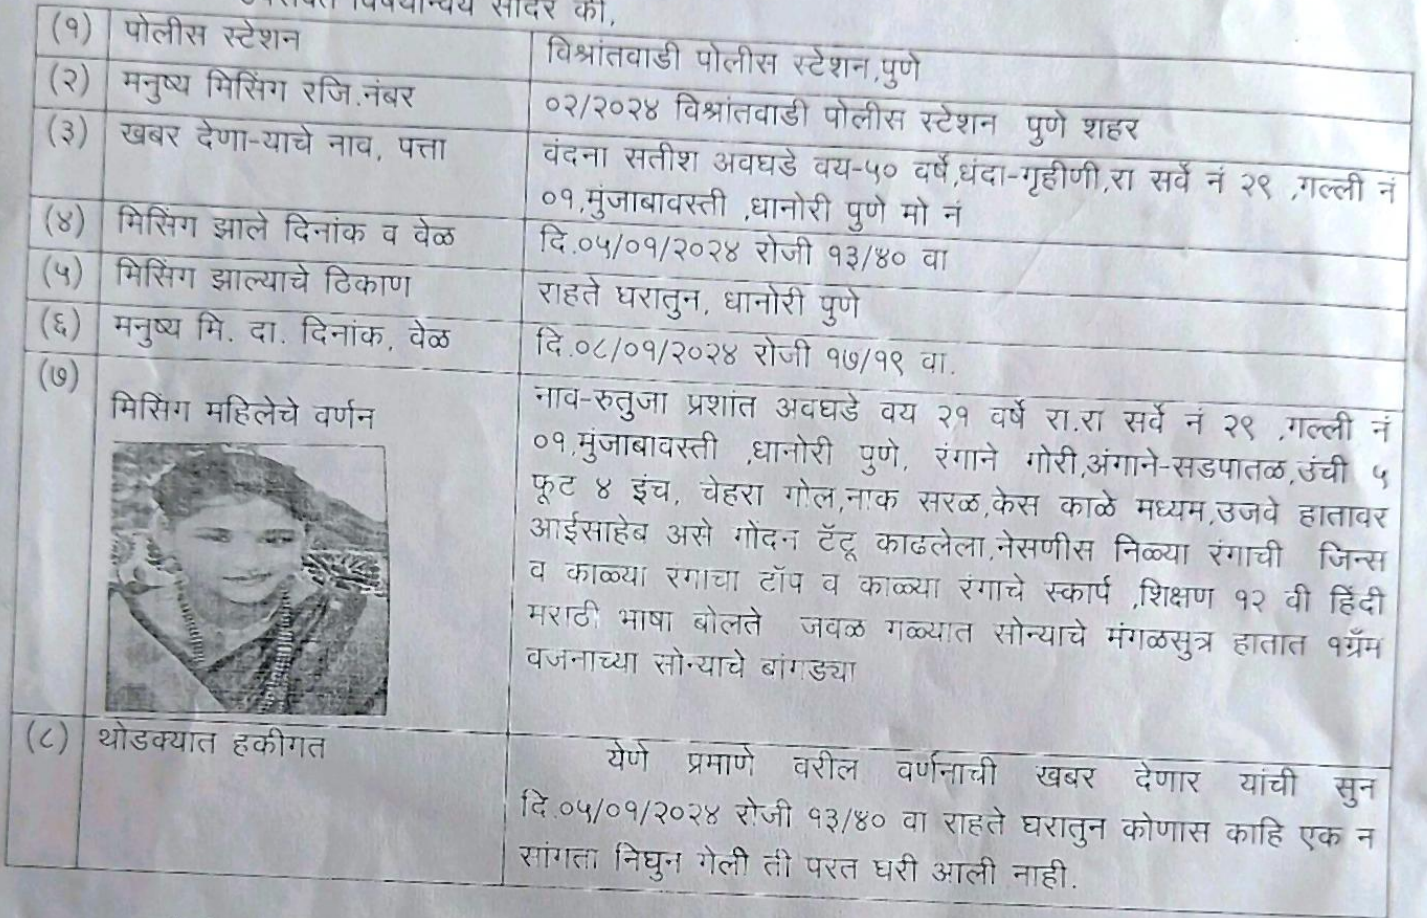 सादर की,
(१) पोलीस स्टेशन
विश्रांतवाडी पोलीस स्टेशन,पुणे
(२) मनुष्य मिसिंग रजि.नंबर
०२/२०२४ विश्रांतवाडी पोलीस स्टेशन पुणे शहर
(३) खबर देणा-याचे नाव, पत्ता
वंदना सतीश अवघडे वय-५० वर्षे,धंदा-गृहीणी,रा सर्वे नं २९ ,गल्ली नं
०१,मुंजाबावस्ती ,धानोरी पुणे मो नं
(४) मिसिंग झाले दिनांक व वेळ
दि.०५/०१/२०२४ रोजी १३/४० वा
(५) मिसिंग झाल्याचे ठिकाण
राहते घरातुन, धानोरी पुणे
(६) मनुष्य मि. दा. दिनांक, वेळ
दि.०८/०१/२०२४ रोजी १७/१९ वा.
(७)
मिसिंग महिलेचे वर्णन
नाव-रुतुजा प्रशांत अवघडे वय २१ वर्षे रा.रा सर्वे नं २९ ,गल्ली नं
०१,मुंजाबावस्ती ,धानोरी पुणे, रंगाने गोरी,अंगाने-सडपातळ,उंची ५
फूट ४ इंच, चेहरा गोल,नाक सरळ,केस काळे मध्यम,उजवे हातावर
आईसाहेब असे गोंदन टॅटू काढलेला,नेसणीस निळ्या रंगाची जिन्स
व काळ्या रंगाचा टॉप व काळ्या रंगाचे स्कार्प ,शिक्षण १२ वी हिंदी
मराठी भाषा बोलते जवळ गळ्यात सोन्याचे मंगळसुत्र हातात १ग्रॅम
वजनाच्या सोन्याचे बांगड्या
(८) थोडक्यात हकीगत
येणे प्रमाणे वरील वर्णनाची खबर देणार यांची सुन
दि.०५/०१/२०२४ रोजी १३/४० वा राहते घरातुन कोणास काहि एक न
सांगता निघुन गेली ती परत घरी आली नाही.